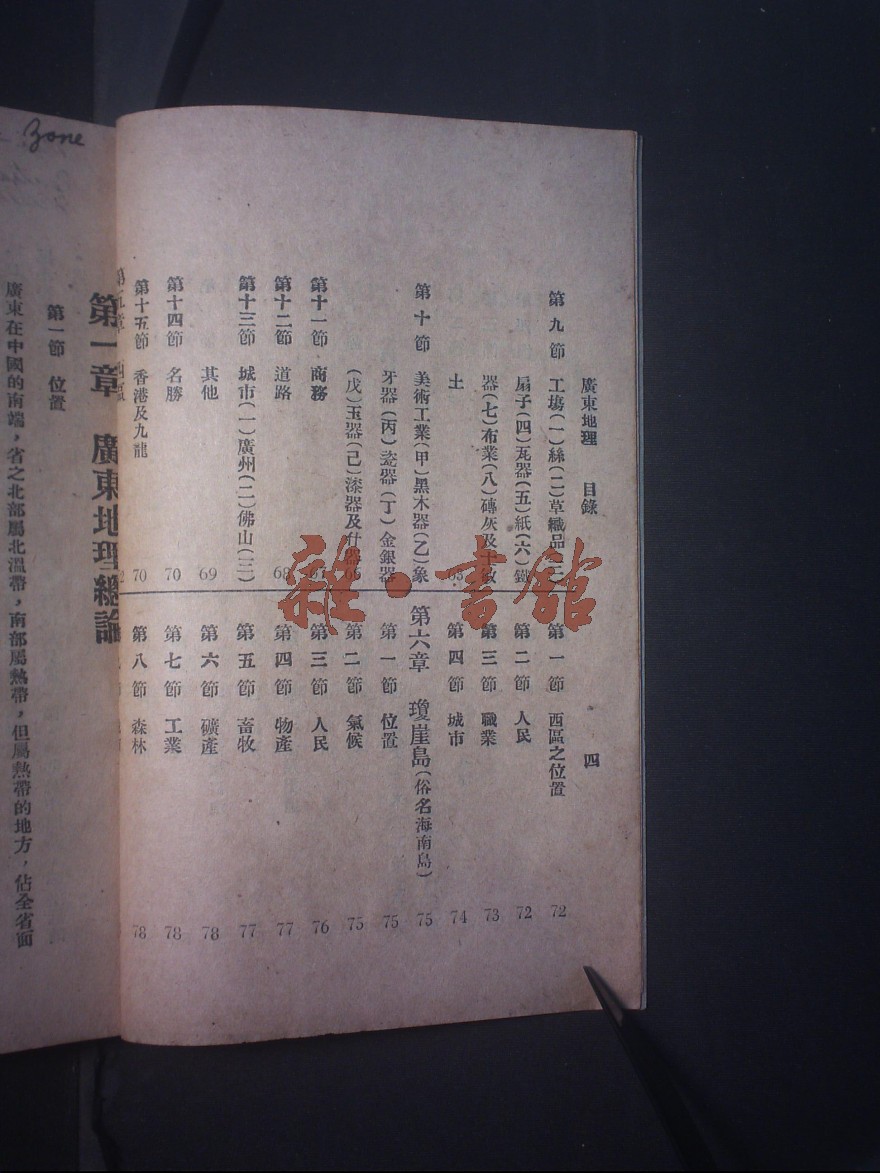 廣東地理 目錄 四
第九節 工塲(一)絲(二)草織品
扇子(四)瓦器(五)紙(六)鐵
器(七)布業(八)磚灰及士敏
土
第十節 美術工業(甲)黑木器(乙)象
牙器(丙)瓷器(丁)金銀器
(戊)玉器(己)漆器及什器
第十一節 商務
第十二節 道路 68
第十三節 城市(一)廣州(二)佛山(三)
其他 69
第十四節 名勝 70
第十五節 香港及九龍 70
第一節 西區之位置 72
第二節 人民 72
第三節 職業 73
第四節 城市 74
第六章 瓊崖島(俗名海南島) 75
第一節 位置 75
第二節 氣候 75
第三節 人民 76
第四節 物產 77
第五節 畜牧 77
第六節 礦產 78
第七節 工業 78
第八節 森林 78
雜·書館
Zone
第一章 廣東地理總論
第一節 位置
廣東在中國的南端，省之北部屬北溫帶，南部屬熱帶，但屬熱帶的地方，佔全省面